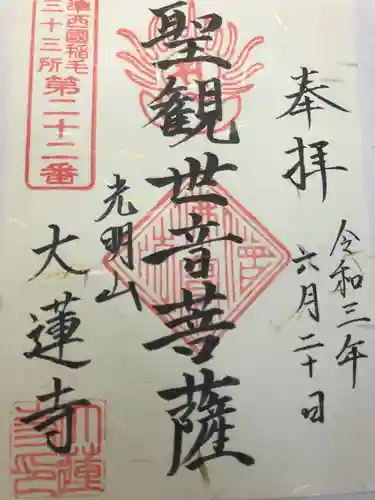 奉拝
令和三年
六月二十日
聖観世音菩薩
光明山
大蓮寺
準西國稲毛
三十三所
第二十二番